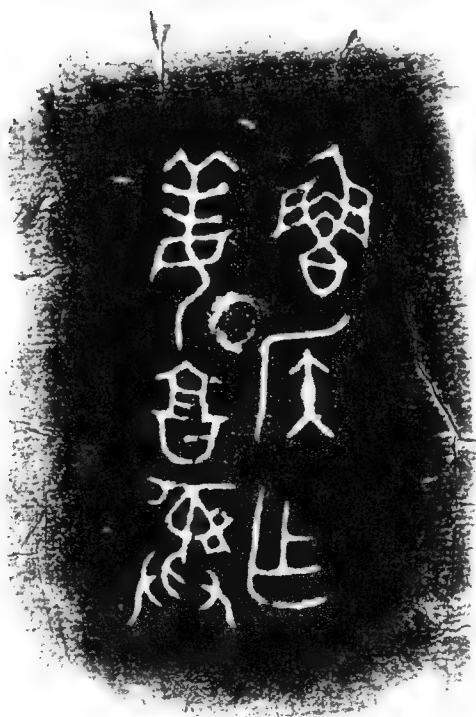 魯侯乍
姜亯彝